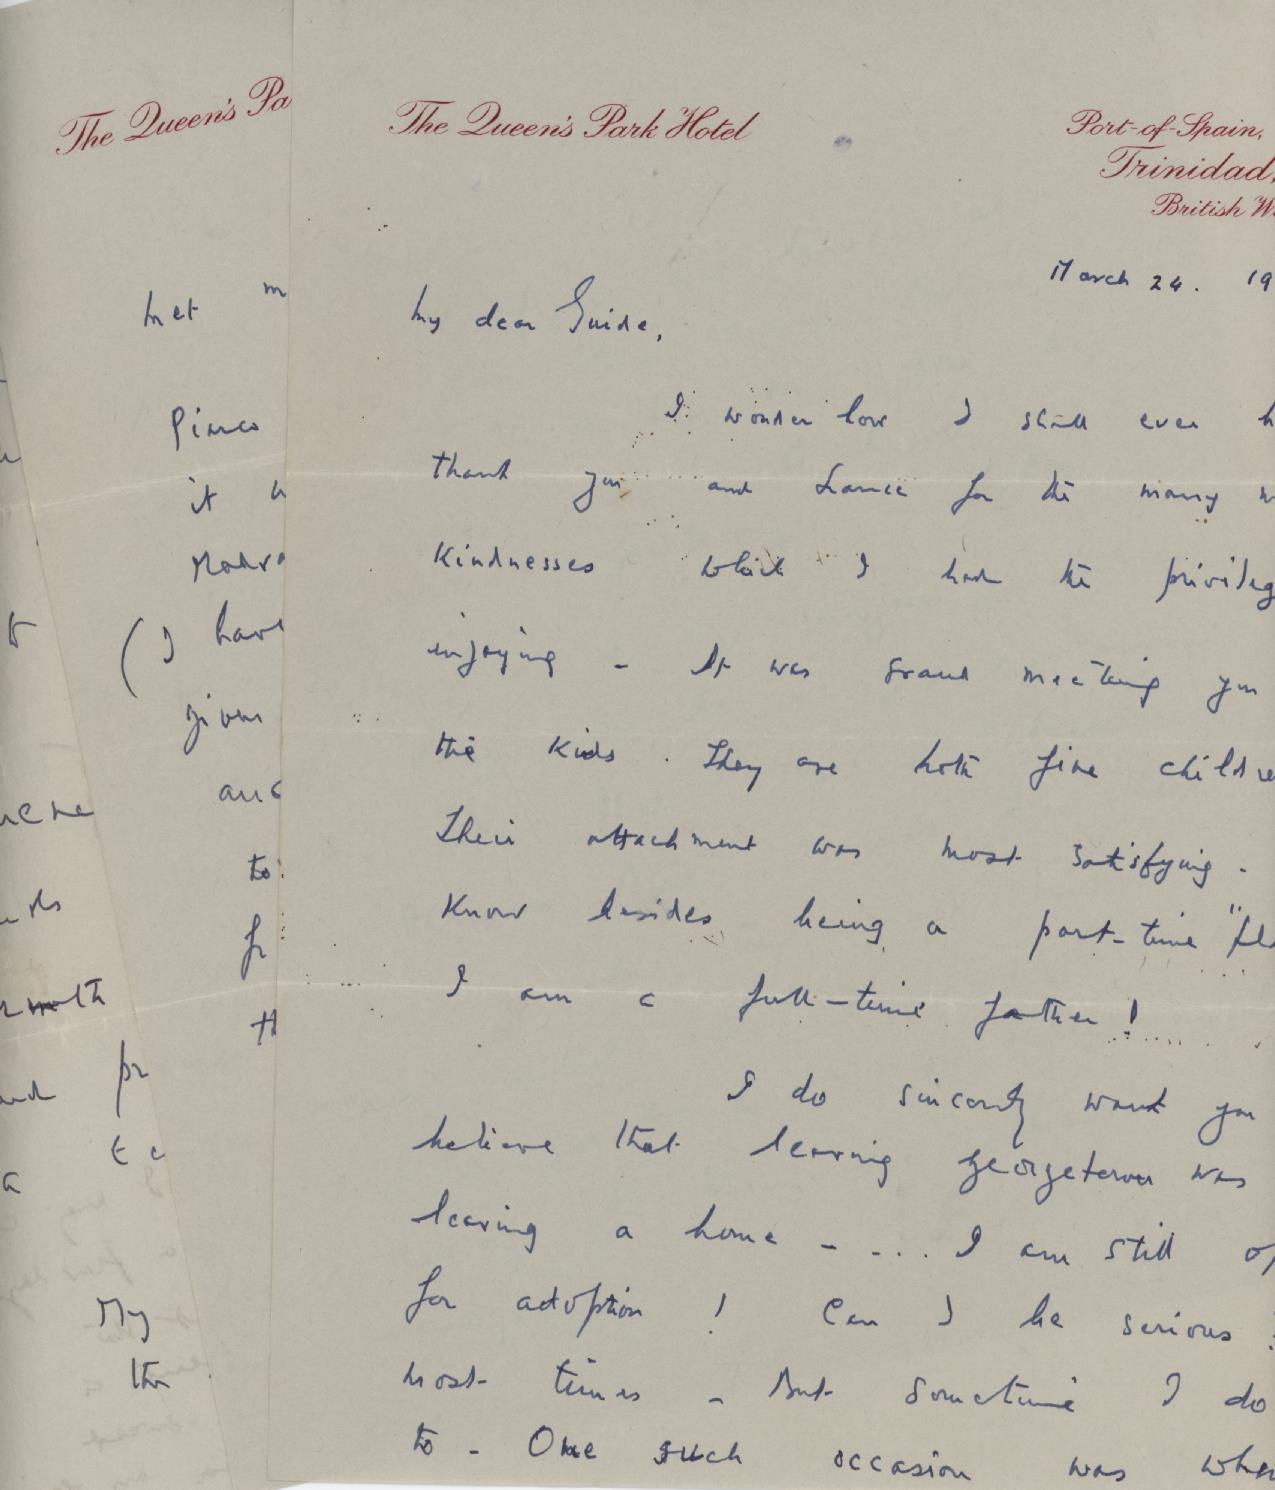 The Queen's Pa
The Queen's Park Hotel
Port-of-Spain,
Trinidad,
British W.
March 24. 19
My dear Guide,
I wonder how I shall ever h
thank you and Lance for the many w
kindnesses which I had the privileg
enjoying - It was grand meeting you
the kids. They are both fine childre
Their attachment was most satisfying.
Know besides being a part-time
I am a full-time father!
I do sincerely want you
believe that leaving Georgetown was
leaving a home - - ... I am still
for adoption! Can I be serious
most times - But sometime I do
to - One such occasion was when
met m
it
(I have
given
to
My